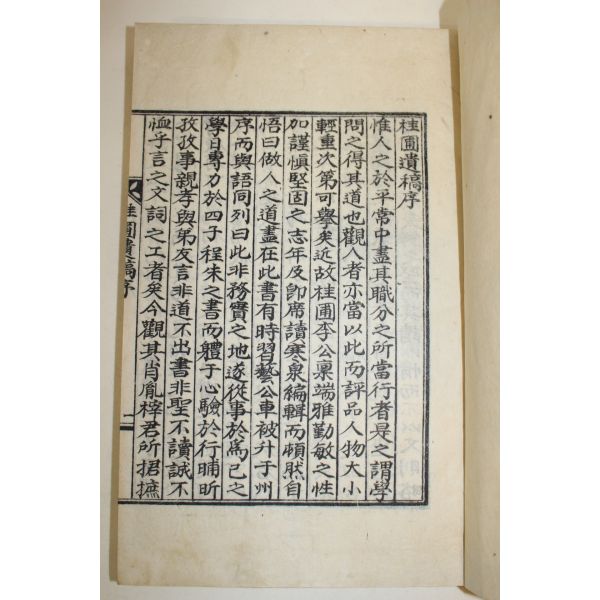 桂圃遺稿序
惟人之於平常中盡其職分之所當行者是之謂學
問之得其道也觀人者亦當以此而評品人物大小
輕重次第可擧矣近故桂圃李公稟端雅勤敏之性
加謹愼堅固之志年及卽席讀寒泉編輯而頓然自
悟曰做人之道盡在此書有時習藝公車被升于州
序而與語同列曰此非務實之地遂從事於爲己之
學日專力於四子程朱之書而體于心驗於行晡昕
孜孜事親孝與弟友言非道不出書非聖不讀誠不
恤乎言之文詞之工者矣今觀其肖胤梓君所招摭
桂圃遺稿序
一